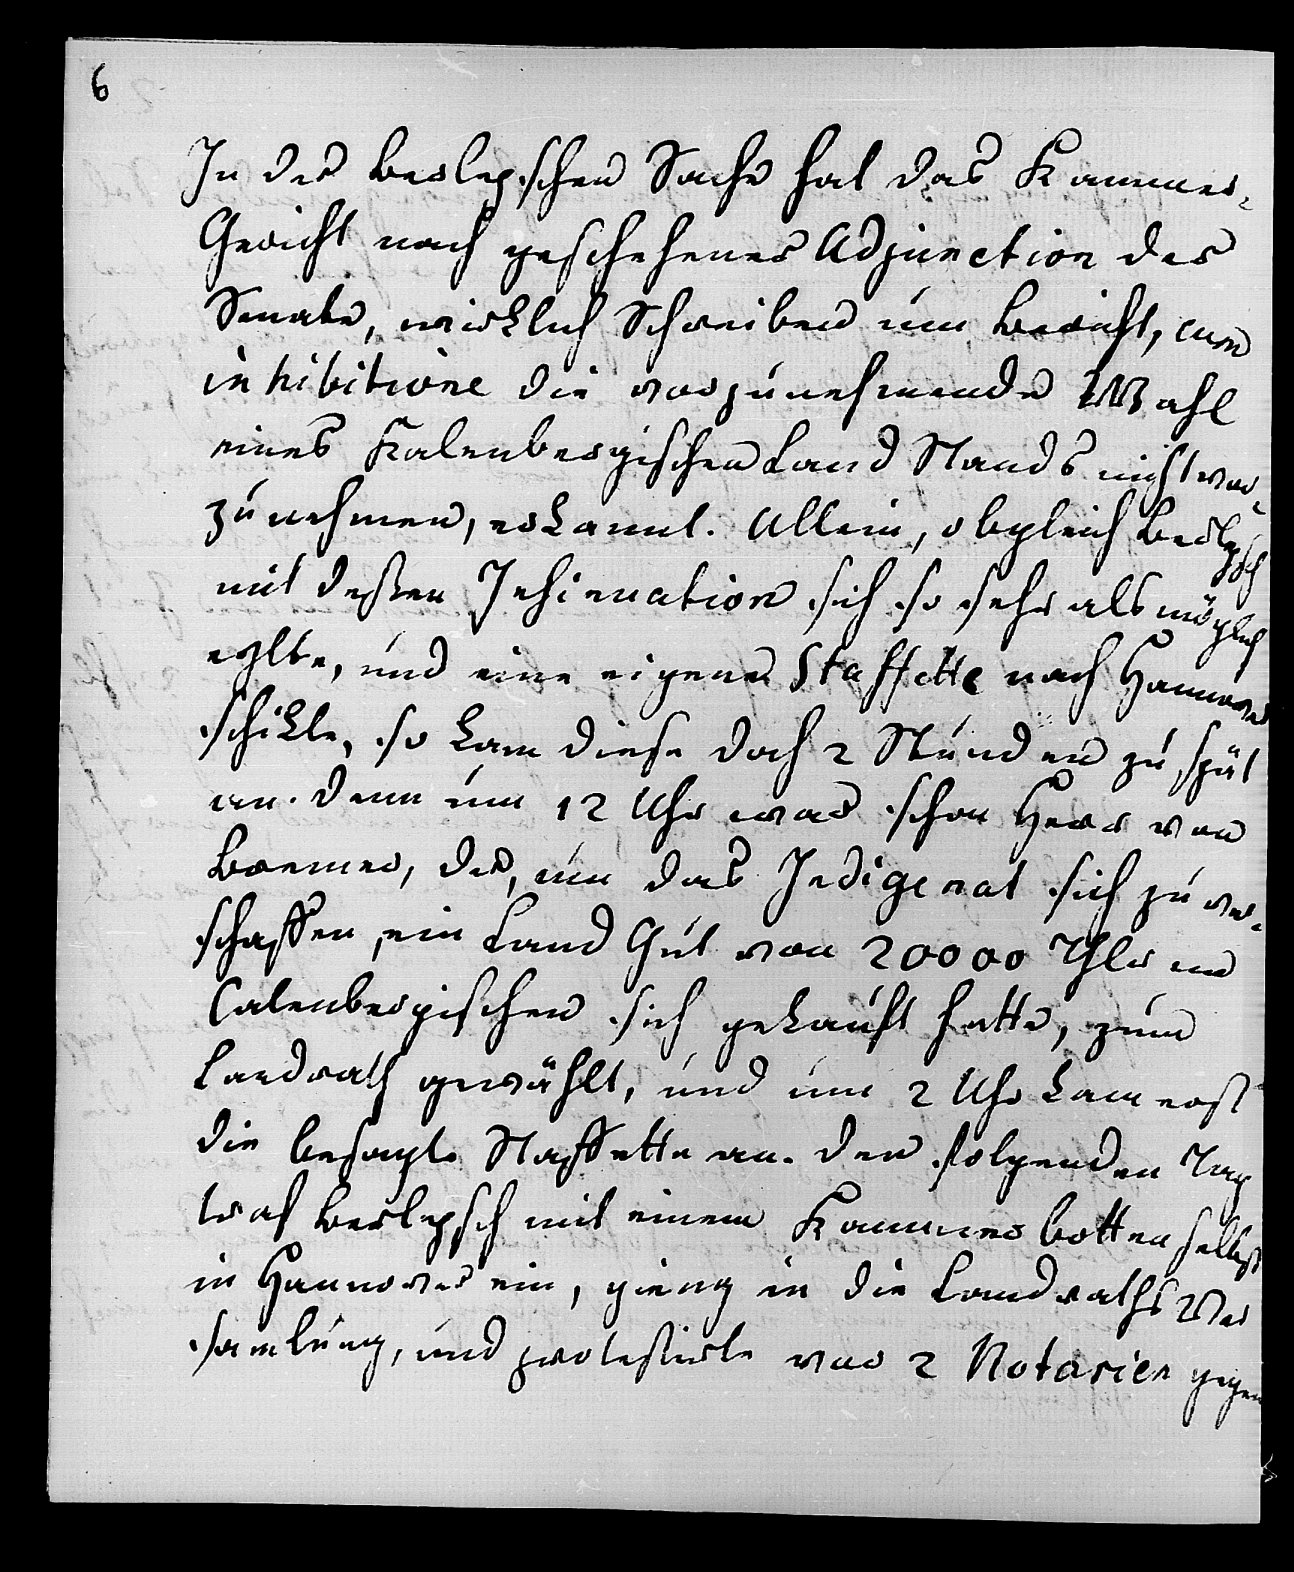 6
In der Berlepschen Sache hat das Kammer-
Gericht nach geschehener Adjunction des
Senats, wirklich Schreiben um Bericht, cum
inhibitione die vorzunehmende Wahl
eines Kalenbergischen Land Stands nicht vor-
zunehmen, erkannt. Allein, obgleich Berlepsch
mit deßen Insinuation sich so sehr als möglich
eylte, und eine eigene Staffette nach Hannover
schikte, so kam diese doch 2 Stunden zu spät
an. Denn um 12 Uhr war schon Herr von
Bremer, der, um das Indigenat sich zu ver-
schaffen, ein Land Gut von 20000 Thlr im
Calenbergischen sich gekauft hatte, zum
Landrath gewählt, und um 2 Uhr kam erst
die besagte Staffette an. Den folgenden Tag
traf Berlepsch mit einem Kammerbotten selbst
in Hannover ein, gieng in die Landraths Ver
samlung, und protestirte vor 2 Notarien gegen